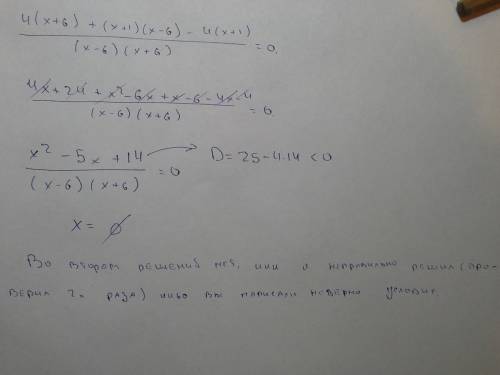 4(x+6) + (x+1)(x-6) - 4(x+1)
(x-6)(x+6) = 0.
4x+24 + x² - 6x + x - 6 - 4x - 4
(x-6)(x+6) = 0.
x² - 5x + 14 → D = 25 - 4·14 < 0
(x-6)(x+6) = 0
x = ∅
Во втором решений нет, или я неправильно решил (про-
верил 2 раза) либо вы написали неверно условие.